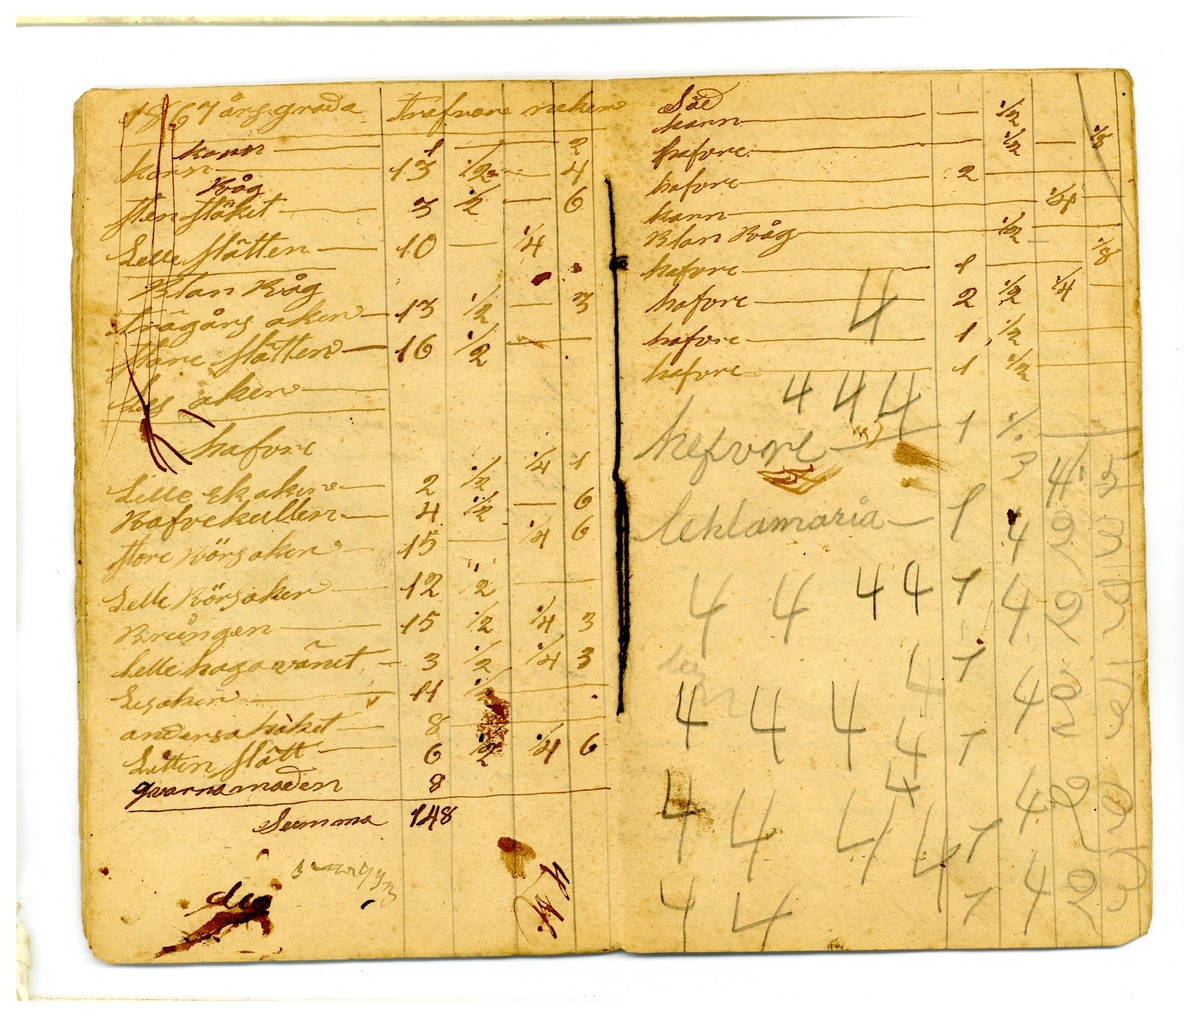 1867 års gröda trafvare neker
korn 1 2
korn 13 1/2 4
Råg
sten stäket 3 1/2 6
Lille slätten 10 1/4
Blan Råg
trägårs åken 13 1/2 3
store slätten 16 1/2
Leg åken
hafvre
1/4 1
Lille Ekaken 2 1/2
Rafvekullen 4 1/2 6
store Rörsaken 15 1/4 6
Lelle Rörsaken 12 1/2
Brungen 15 1/2 1/4 3
Lelle hagavänet 3 1/2 1/4 3
Legaken 11 1/2
andersa 8
Litten slått 6 1/2 1/4 6
qvarnamaden 8
Summa 148
Säd
korn 1/2
hafvre 1/2 1/8
hafvre 2
korn 1/4
Blan Råg 1/2
hafvre 1 1/8
hafvre 2 1/2 1/4
hafvre 1 1/2
hafvre 1 1/2
4
4 4 4
hefvore 1
4 5
leklamaria 1
4 2 3
4 4 4 4 1 4 2
4 1
4 4 4 4 2
4 1
4
4 4 4 4 1 4 2
4 4 1 4 2